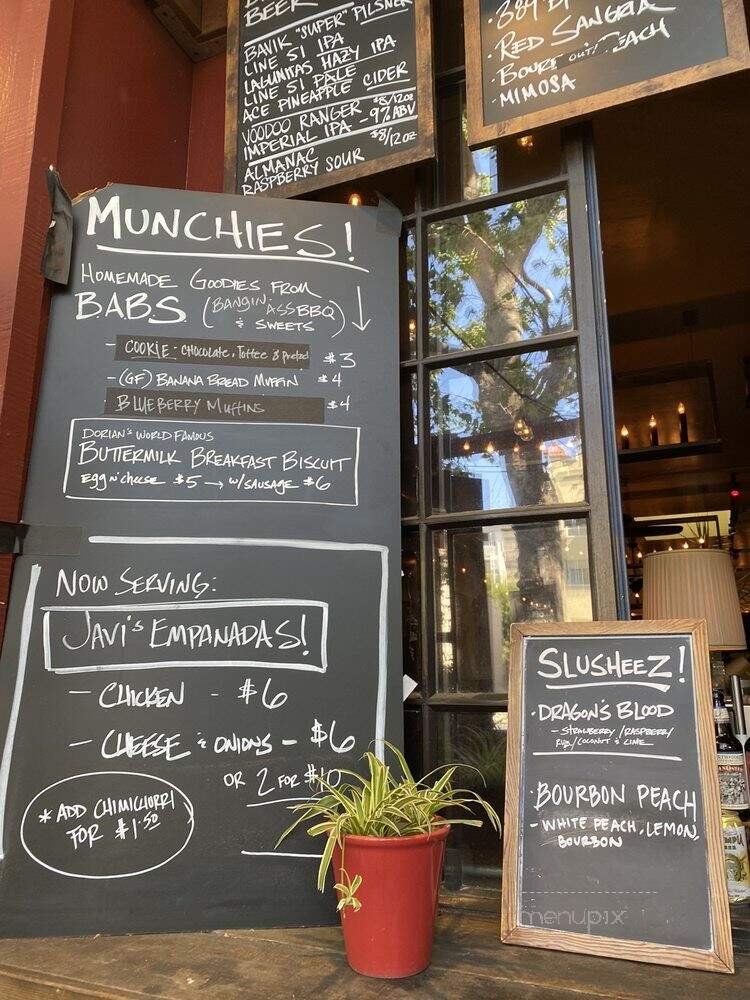 BEER
BAVIK "SUPER" PILSNER
LINE 51 IPA
LAGUNITAS HAZY IPA
LINE 51 PALE
ACE PINEAPPLE CIDER
VOODOO RANGER $8/12oz
IMPERIAL IPA - 9% ABV
ALMANAC $8/12oz
RASPBERRY SOUR
• RED SANGRIA
OUT!
• MIMOSA
MUNCHIES!
HOMEMADE GOODIES FROM
BABS (BANGIN' ASS BBQ
& SWEETS)
- COOKIE - CHOCOLATE, TOFFEE & PRETZEL $3
- (GF) BANANA BREAD MUFFIN $4
BLUEBERRY MUFFINS $4
DORIAN'S WORLD FAMOUS
BUTTERMILK BREAKFAST BISCUIT
EGG N' CHEESE $5 → W/ SAUSAGE $6
NOW SERVING:
JAVI'S EMPANADAS!
- CHICKEN - $6
- CHEESE & ONIONS - $6
OR 2 FOR $10
* ADD CHIMICHURRI
FOR $1.50
SLUSHEEZ!
• DRAGON'S BLOOD
- STRAWBERRY / RASPBERRY
RUM / COCONUT & LIME
• BOURBON PEACH
- WHITE PEACH, LEMON,
BOURBON
menupix